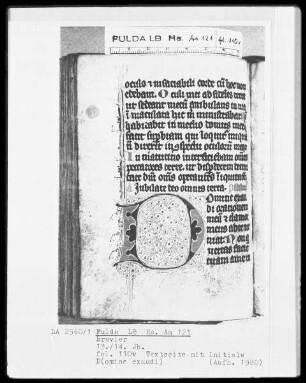 FULDA LB. Hs. An 121 fol. 110v
oculo et insaciabili corde cum hoc non
edebam. Oculi mei ad fideles terre
ut sedeant mecum ambulans in via
in maculata hic mihi ministrabat
habitabit in medio domus mee
facit superbiam qui loquitur iniqua
non direxit in conspectu oculorum meorum
In matutino interficiebam omnes
peccatores terre. ut disperderem de
civitate domini omnes operantes iniquitatem
Jubilate deo omnis terra.
Domine exau
di orationem
meam et clamor
meus ad te ve
niat. Non
avertas faciem
tuam a me
DA 2540/1 Fulda LB Hs. An 121
Brevier
13./14. Jh.
fol. 110v Textseite mit Initiale
D(omine exaudi) (Aufn. 1980)